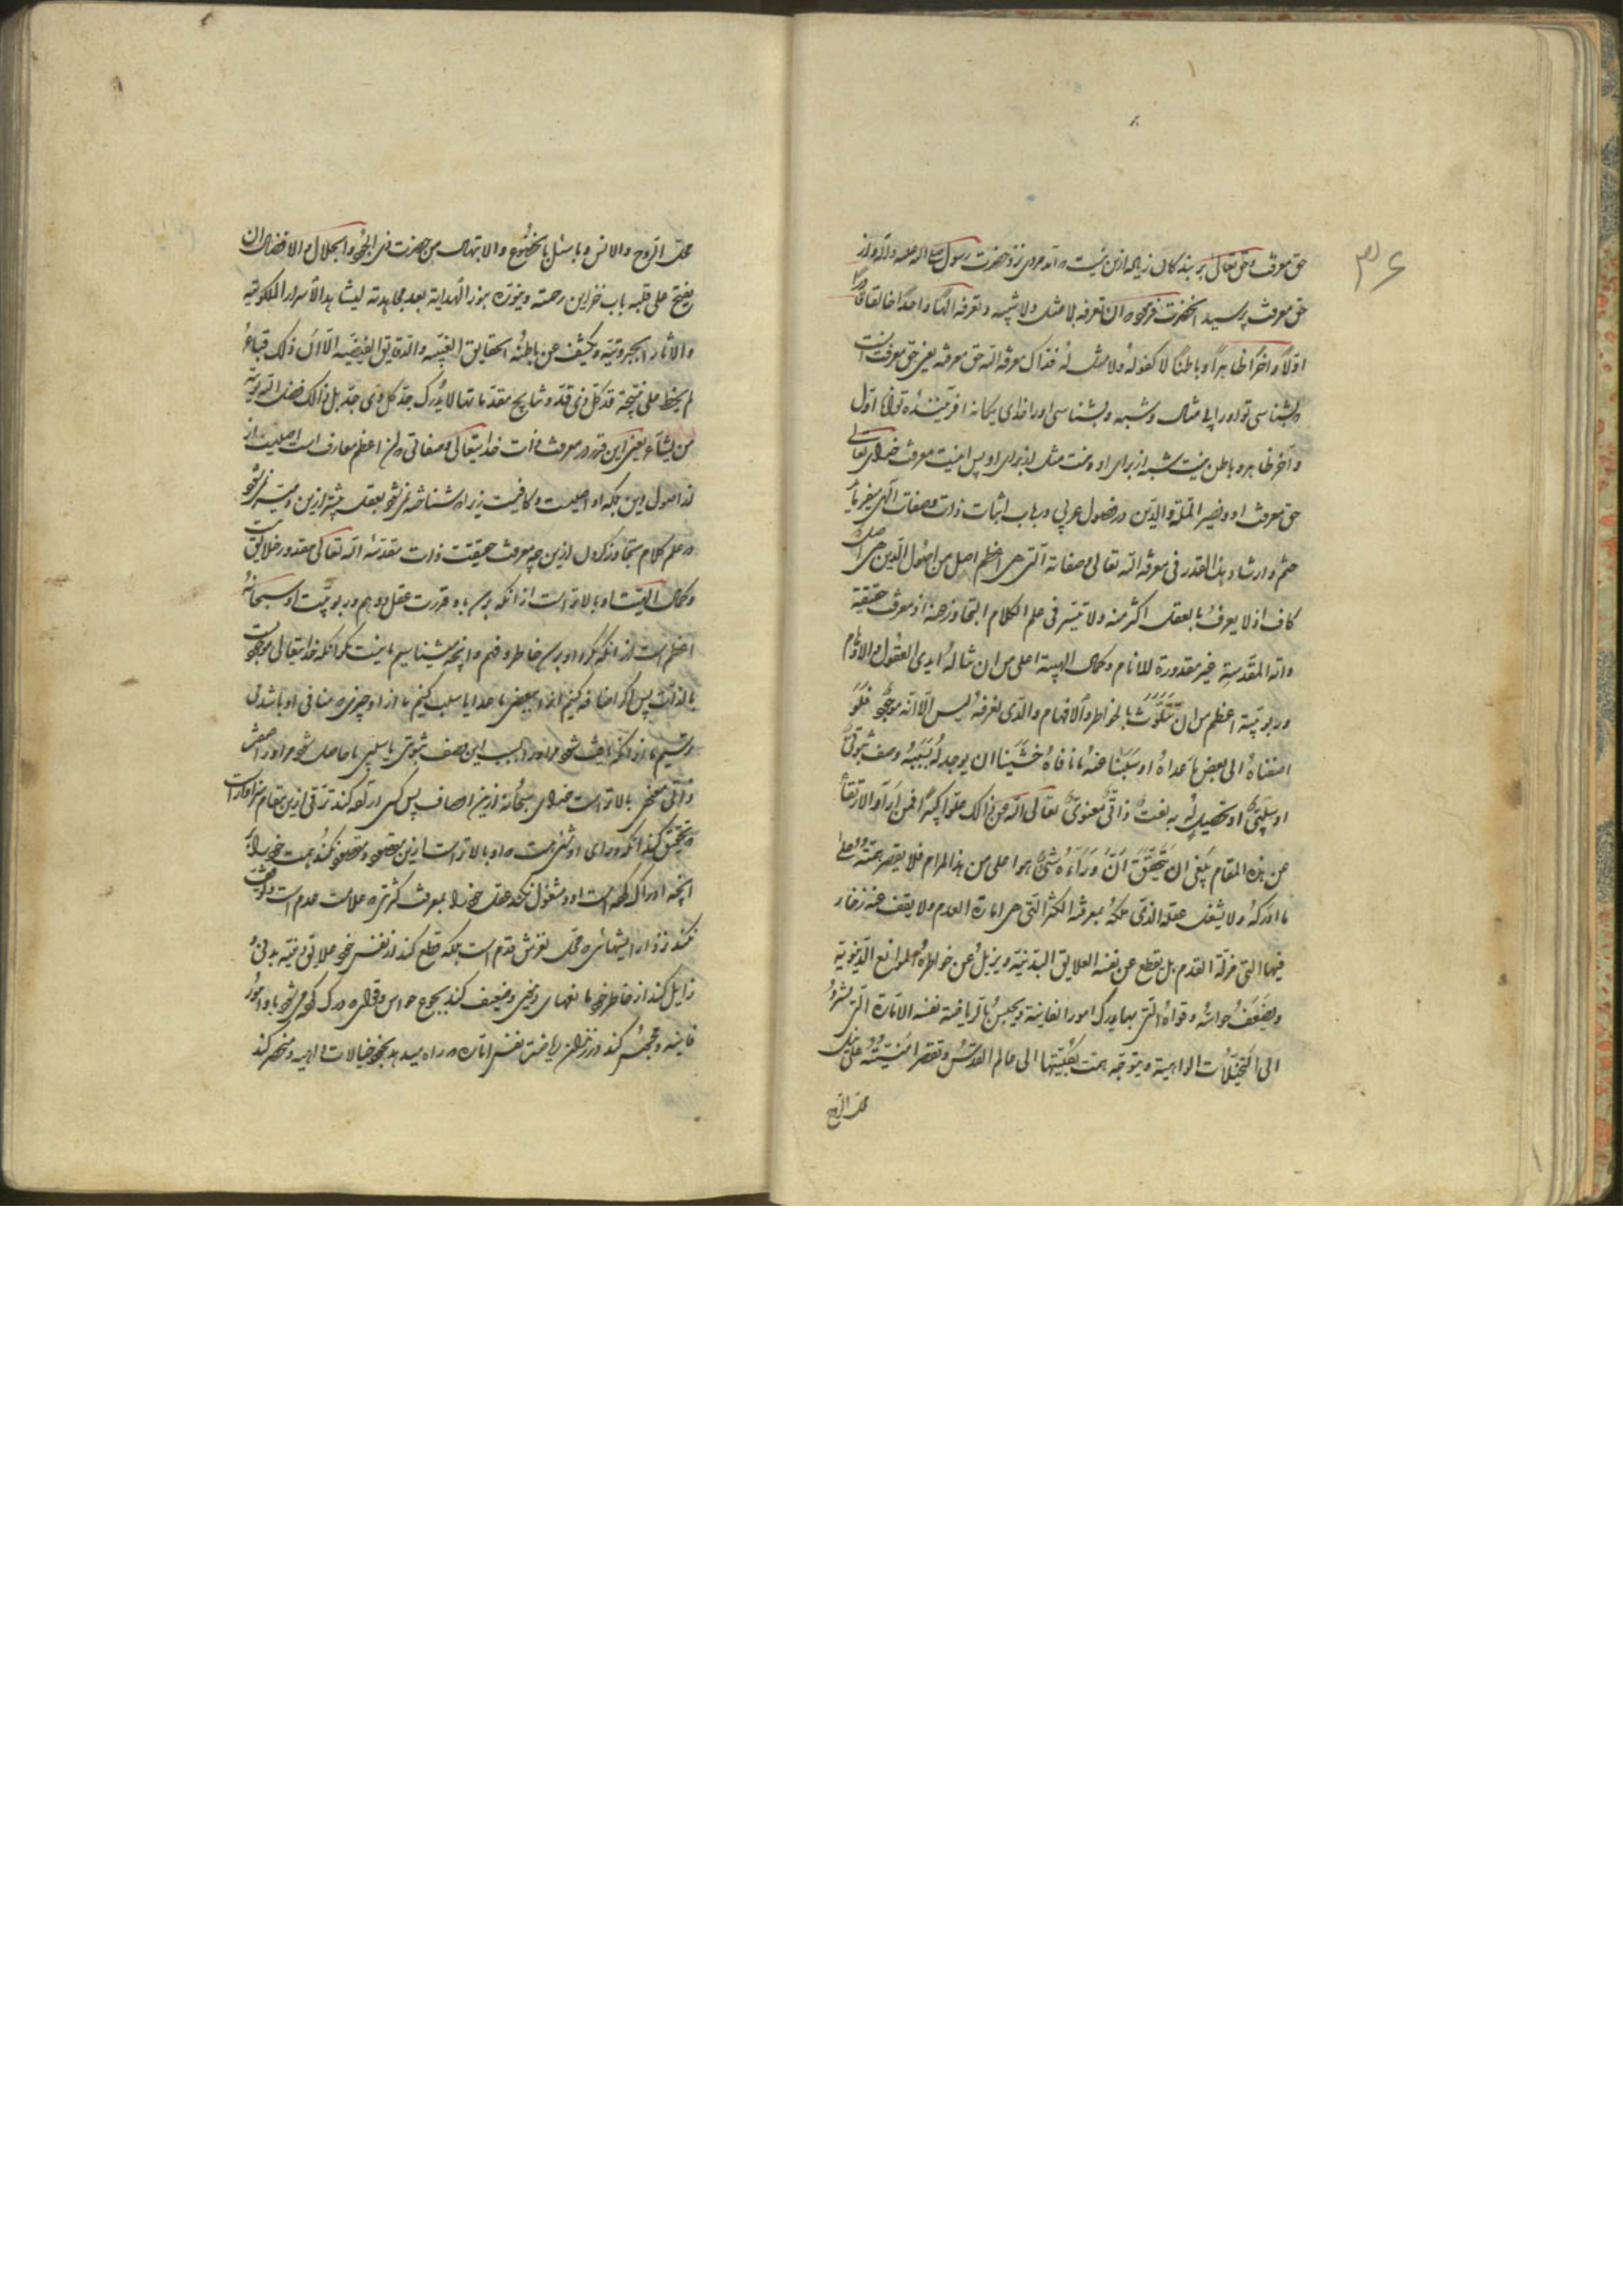 حق معرفت حق تعالی بر بندگان زیاده ازین نیست مردی نزد حضرت رسول صلی الله علیه وآله واز
حق معرفت پرسید آنحضرت فرمود ان تعرفه بلا مثل ولا شبیه و تعرفه الها واحدا خالقا قادرا
اولا و اخرا ظاهرا و باطنا لا کفو له ولا مثل له فذاک معرفة الله حق معرفته یعنی حق معرفت
بشناسی تو او را بی مثال و شبه و بشناسی او را خدای یگانه آفریننده توانا اول
و آخر ظاهر و باطن نیست شبه از برای او و نیست مثل از برای او پس اینست معرفت خدای تعالی
حق معرفت او و نصیر الملة والدین در فصول عربی در باب اثبات ذات و صفات الهی میفرماید
ختم و ارشاد هذا القدر فی معرفة الله تعالی و صفاته التی هی اعظم اصل من اصول الدین هی اصل
کاف اذ لا یعرف بالعقل اکثر منه ولا تیسر فی علم الکلام التجاوز عنه اذ معرفة حقیقة
ذاته المقدسة غیر مقدورة للانام و کمال الهیته اعلی من ان تناله ایدی العقول والاوهام
وربوبیته اعظم من ان تتلوث بالخواطر والافهام والذی نعرفه لیس الا انه موجود فلو
اضفناه الی بعض ما عداه او سلبنا عنه ما نافاه خشینا ان یوجد له بسببه وصف ثبوتی
او سلبی او تحصیل له به نعت ذاتی معنوی تعالی الله عن ذالک علوا کبیرا فمن اراد الارتقاء
عن هذه المقام ینبغی ان یتحقق ان وراءه شیء هو اعلی من هذا المرام فلا یقصر همته علی
ما ادرکه ولا یشغل عقله الذی ملکه بمعرفة الکثرة التی هی امارة العدم ولا یقف عند زخارف
فیها التی مزلة القدم بل یقطع عن نفسه العلایق البدنیة و یزیل عن خواطره الموانع الدنیویة
و یضعف حواسه و قواه التی بها یدرک امور الفانیة و یحبس بالریاضة نفسه الامارة التی تشیر
الی التخیلات الواهیة و یتوجه همته بکلیتها الی عالم القدس و یقصر امنیته علی نیل
محل الروح
محل الروح والانس و یا یسئل بالخضوع والابتهال من حضرت ذی الجود والجلال والافضال ان
یفتح علی قلبه باب خزاین رحمته و ینوره بنور الهدایة بعد مجاهدته لیشاهد الاسرار الملکوتیة
والآثار الجبروتیة و یکشف عن باطنه الحقایق الغیبیة والدقایق الفیضیة الا ان ذلک قباء
لم یخط علی قد کل ذی قد و نتایج مقدماتها لا یدرک بجد کل ذی جد بل ذالک فضل الله یؤتیه
من یشاء یعنی این قدر در معرفت ذات خدایتعالی و صفاتی که اعظم معارف است اصلیست از
اصول دین بلکه او اصلیست و کافیست زیرا که شناخته نمیشود بعقل بیشتر ازین و میسر نمیشود
در علم کلام تجاوز کردن ازین چه معرفت حقیقت ذات مقدسه الله تعالی مقدور خلایق نیست
و کمال الهیت او بالاتر است از آنکه برسد باو قدرت عقل و وهم و ربوبیت او سبحانه
اعظم است از آنکه گرد او برسد خاطر و فهم و آنچه میشناسیم ما نیست مگر آنکه خدایتعالی موجود است
بالذات پس اگر اضافه کنیم او را ببعضی ما عدا یا سلب کنیم ما از او چیزی که منافی او باشد
ترسیم ما از آنکه یافت شود مر او را بسبب این وصف ثبوتی یا سلبی یا حاصل شود مر او را صفتی
ذاتی معنوی بالاتر است خدای سبحانه ازین اوصاف پس کسی اراده کند ترقی ازین مقام سزاوار است
که تحقیق کند آنکه ورای او شئ هست که او بالاتر است ازین مقصود و مقصور نکند همت خود را بر
آنچه ادراک کرده است او و مشغول نکند عقل خود را بمعرفت کثرتی که علامت عدم است و توقف
نکند نزد آرایشهائی که محل لغزش قدم است بلکه قطع کند از نفس خود علایق دنیه بدنی و
زایل کند از خاطر خود مانعهای دنیوی و ضعیف کند بجوع حواس و قوای که درک کرده میشود باو امور
فانیه و حبس کند بریاضت نفس اماره که راه میدهد بخود خیالات واهیه و منحصر کند